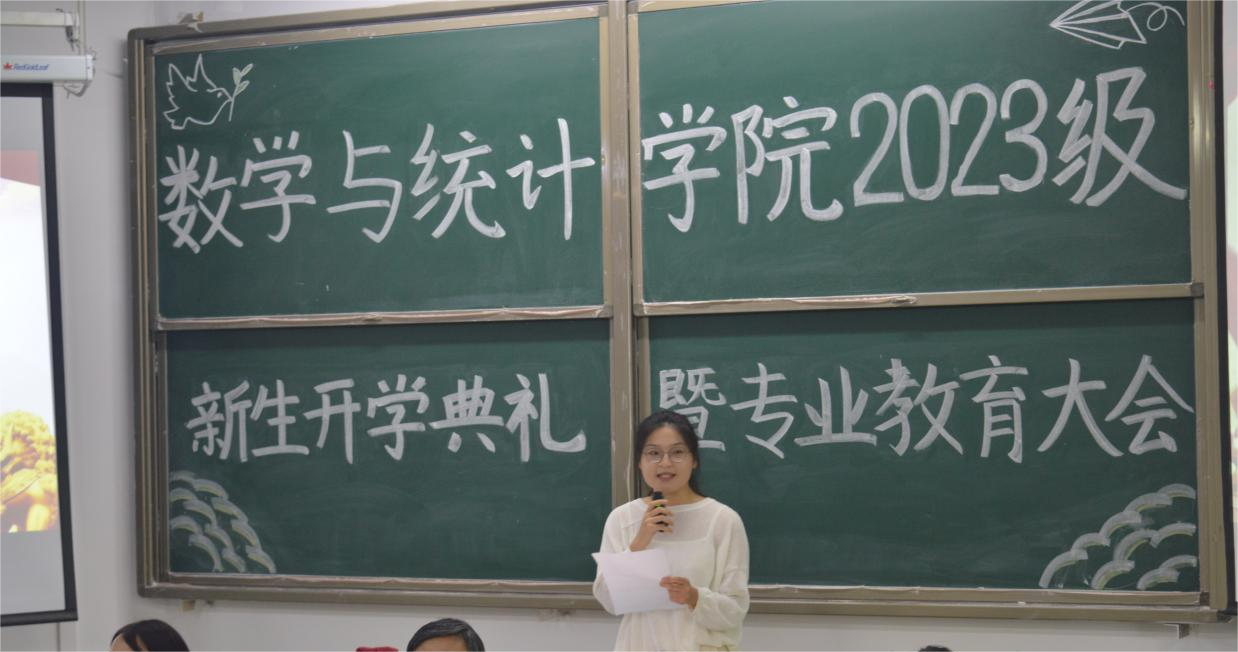 RedGoldLeaf
数学与统计学院2023级
新生开学典礼暨专业教育大会